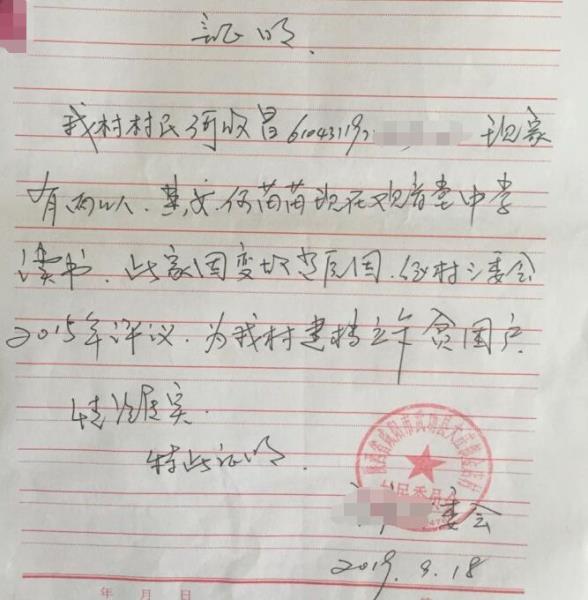 证明.
我村村民何收昌6104311972 现家
有两口人.其女何苗苗现在观音堂中学
读书.此家因变故等原因.经村三委会
2015年评议.为我村建档立卡贫困户
情况属实.
特此证明.
村民委员会
委会
2019.9.18
年 月 日